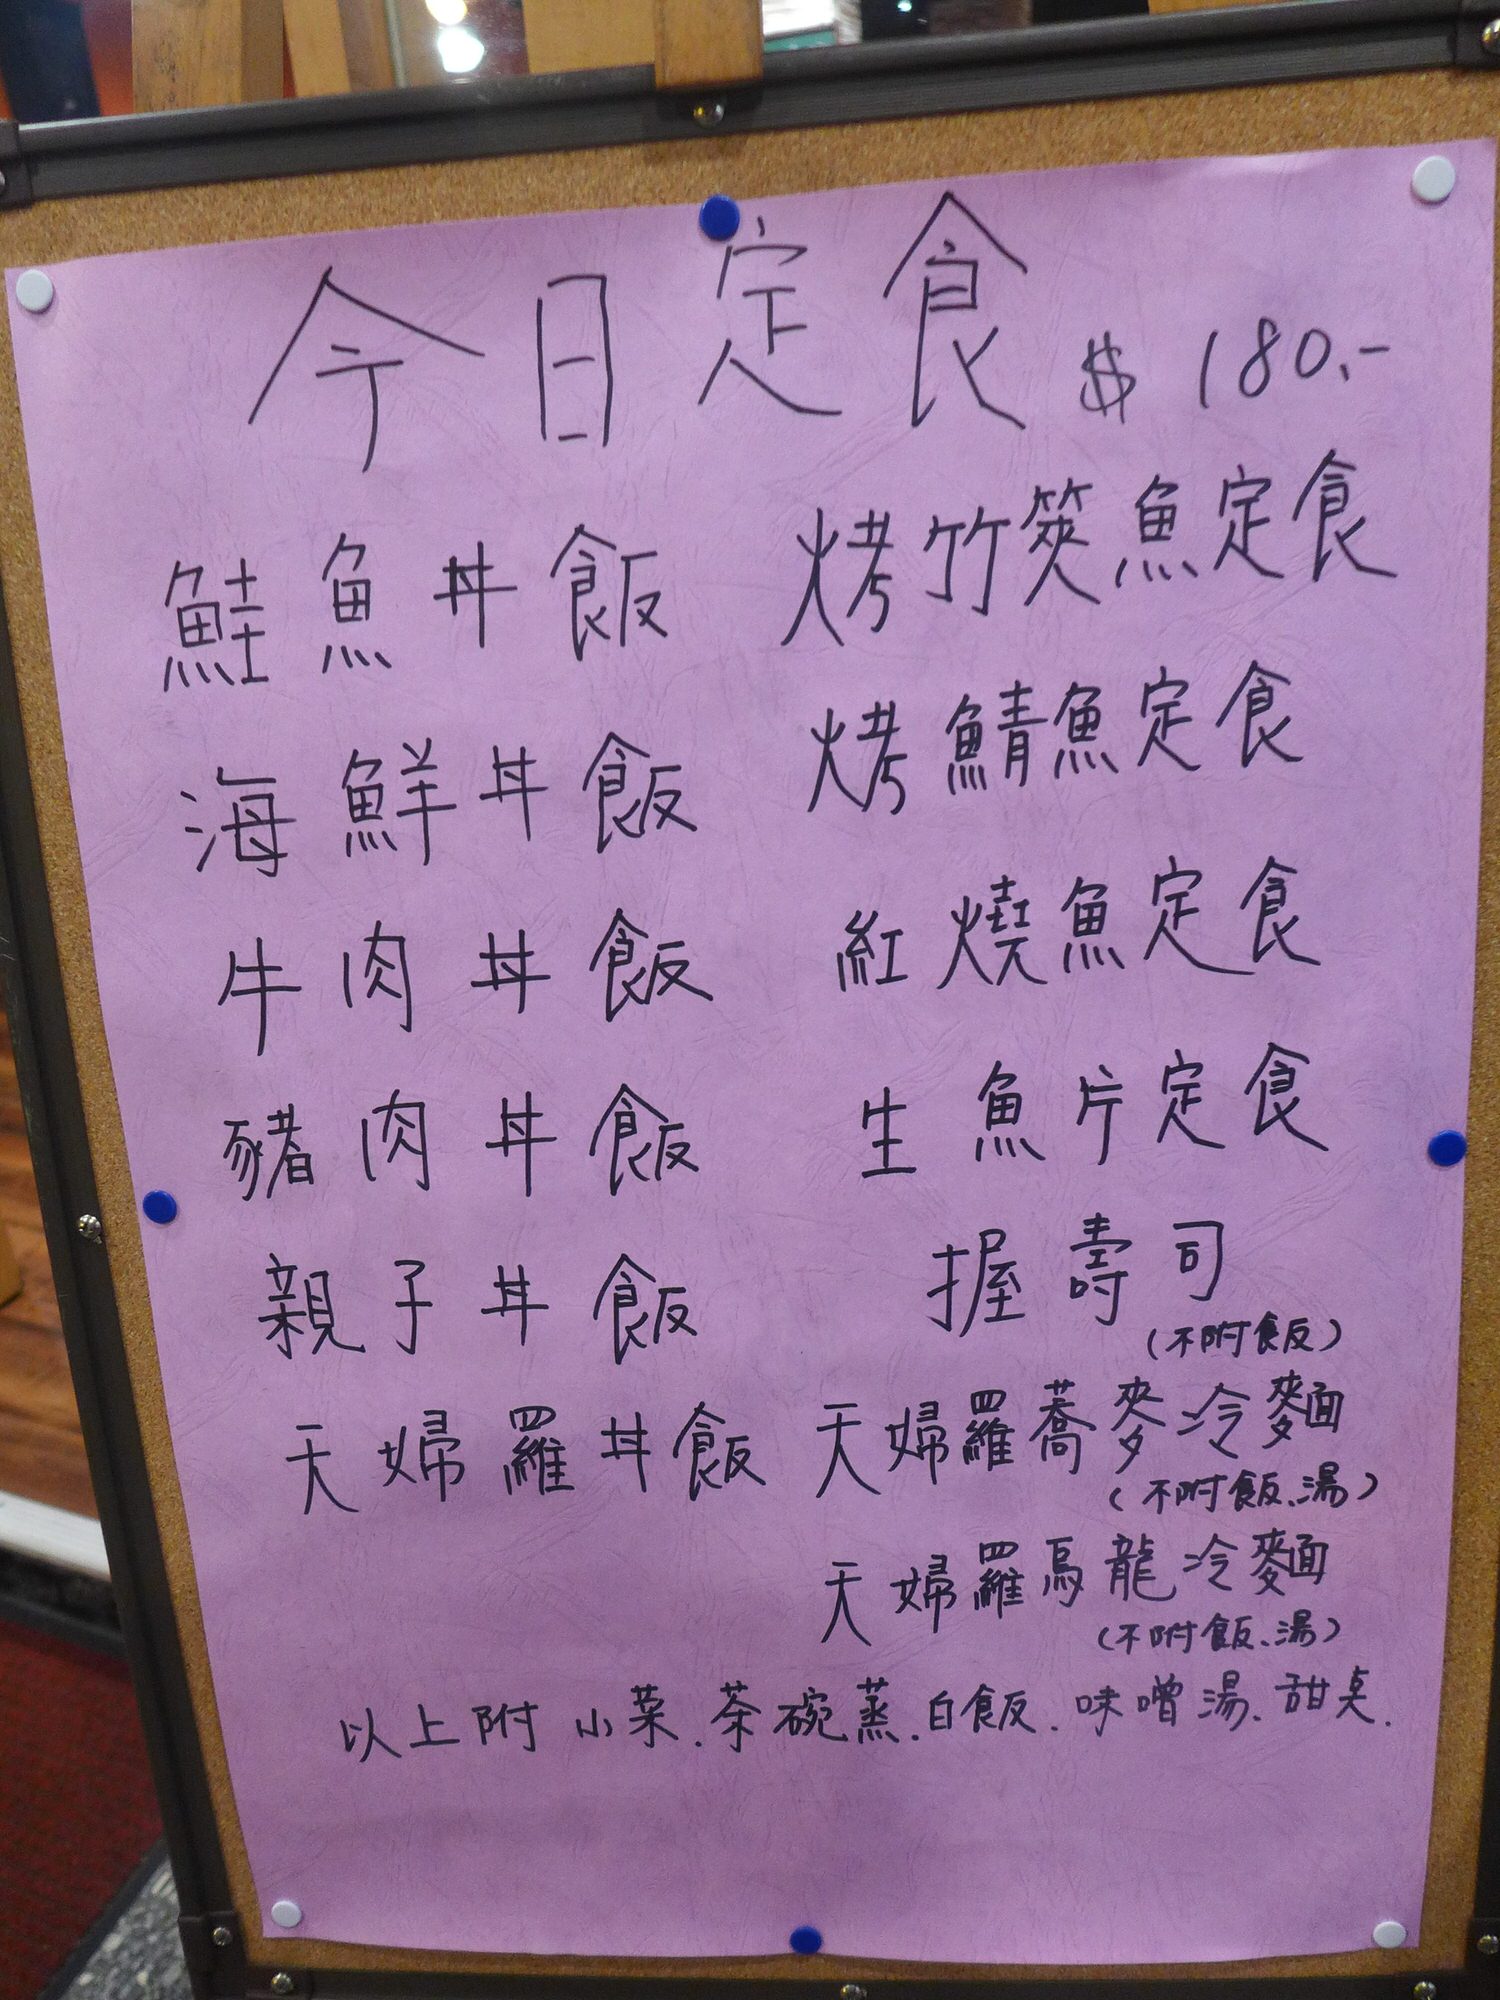 今日定食 $180.-
鮭魚丼飯
海鮮丼飯
牛肉丼飯
豬肉丼飯
親子丼飯
天婦羅丼飯
烤竹筴魚定食
烤鯖魚定食
紅燒魚定食
生魚片定食
握壽司
(不附飯)
天婦羅蕎麥冷麵
(不附飯、湯)
天婦羅烏龍冷麵
(不附飯、湯)
以上附小菜.茶碗蒸.白飯.味噌湯.甜桌.